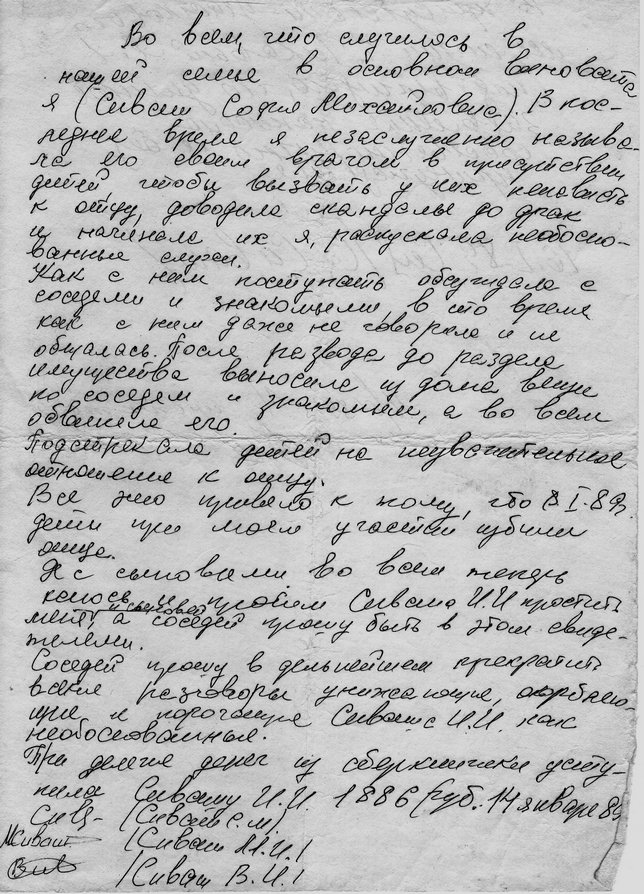 Во всем, что случилось в
нашей семье в основном виновата
я (Сиваш София Михайловна). В пос-
леднее время я незаслуженно называ-
ла его своим врагом в присутствии
детей, чтобы вызвать у них ненависть
к отцу, доводила скандалы до драк
и начинала их я, распускала необосно-
ванные слухи.
Как с ним поступать обсуждала с
соседями и знакомыми, в то время
как с ним даже не говорила и не
общалась. После развода до раздела
имущества выносила из дома вещи
по соседям и знакомым, а во всем
обвиняла его.
Подстрекала детей на неуважительное
отношение к отцу.
Все это привело к тому, что 8 I-89г.
дети при моем участии избили
отца.
Я с сыновьями во всем теперь
каюсь и просим Сиваша И.И простить
меня, и сыновей а соседей прошу быть в этом свиде-
телями.
Соседей прошу в дальнейшем прекратить
всякие разговоры унижающие, оскорбляю-
щие и порочащие Сиваша И.И. как
необоснованные.
При делении денег из сберкнижки усту-
пила Сивашу И.И. 1886 руб. 14 января 89
Сив- (Сиваш С.М)
МСиваш (Сиваш М.И.)
(Сиваш В.И.)